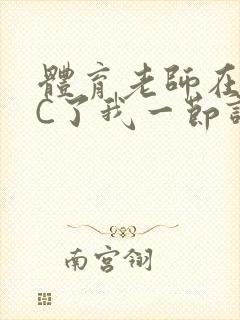 體育老師在
C了我一節
南宫翎